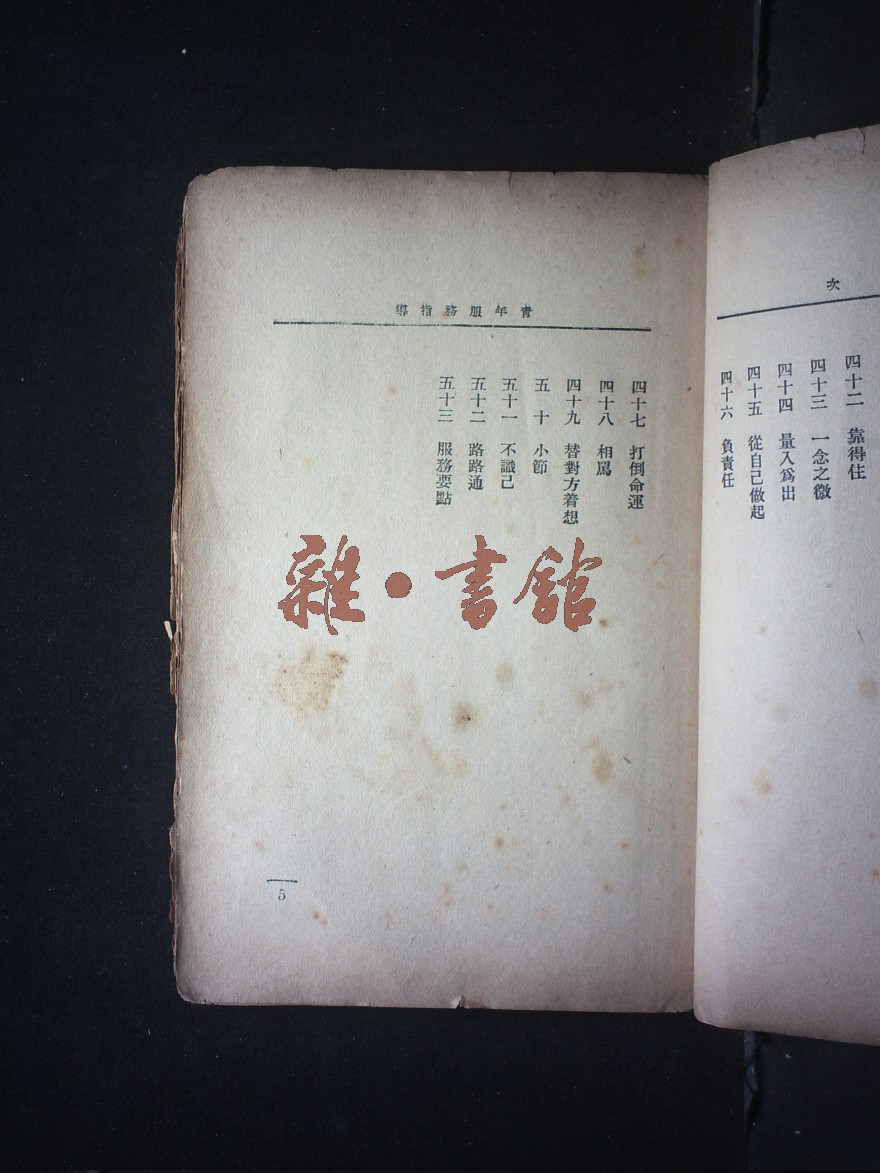 次
四十二　靠得住
四十三　一念之微
四十四　量入爲出
四十五　從自己做起
四十六　負責任
青年服務指導
四十七　打倒命運
四十八　相罵
四十九　替對方着想
五　十　小節
五十一　不識己
五十二　路路通
五十三　服務要點
雜・書館
5